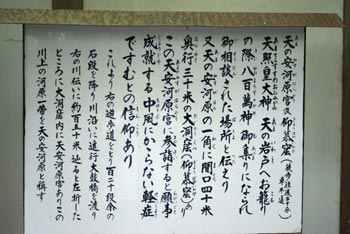 天の安河原宮及仰慕窟
天照皇大神 天の岩戸へお籠り
の際八百萬神御集りになられ
御相談された場所と伝えり
又天の安河原の一角に間口四十米
奥行三十米の大洞窟(仰慕窟)り
この天の安河原宮に参詣すると願事
成就する中風にかからない軽症
ですむとの信仰あり
これより右の遊歩道をとり百二十段余の
石段を降り川沿いに進行大鼓橋を渡り
右の川伝いに約百五十米 辿ると左折した
ところに大洞窟内に天安河原宮ありこの
川上の河原一帯を天の安河原と稱す